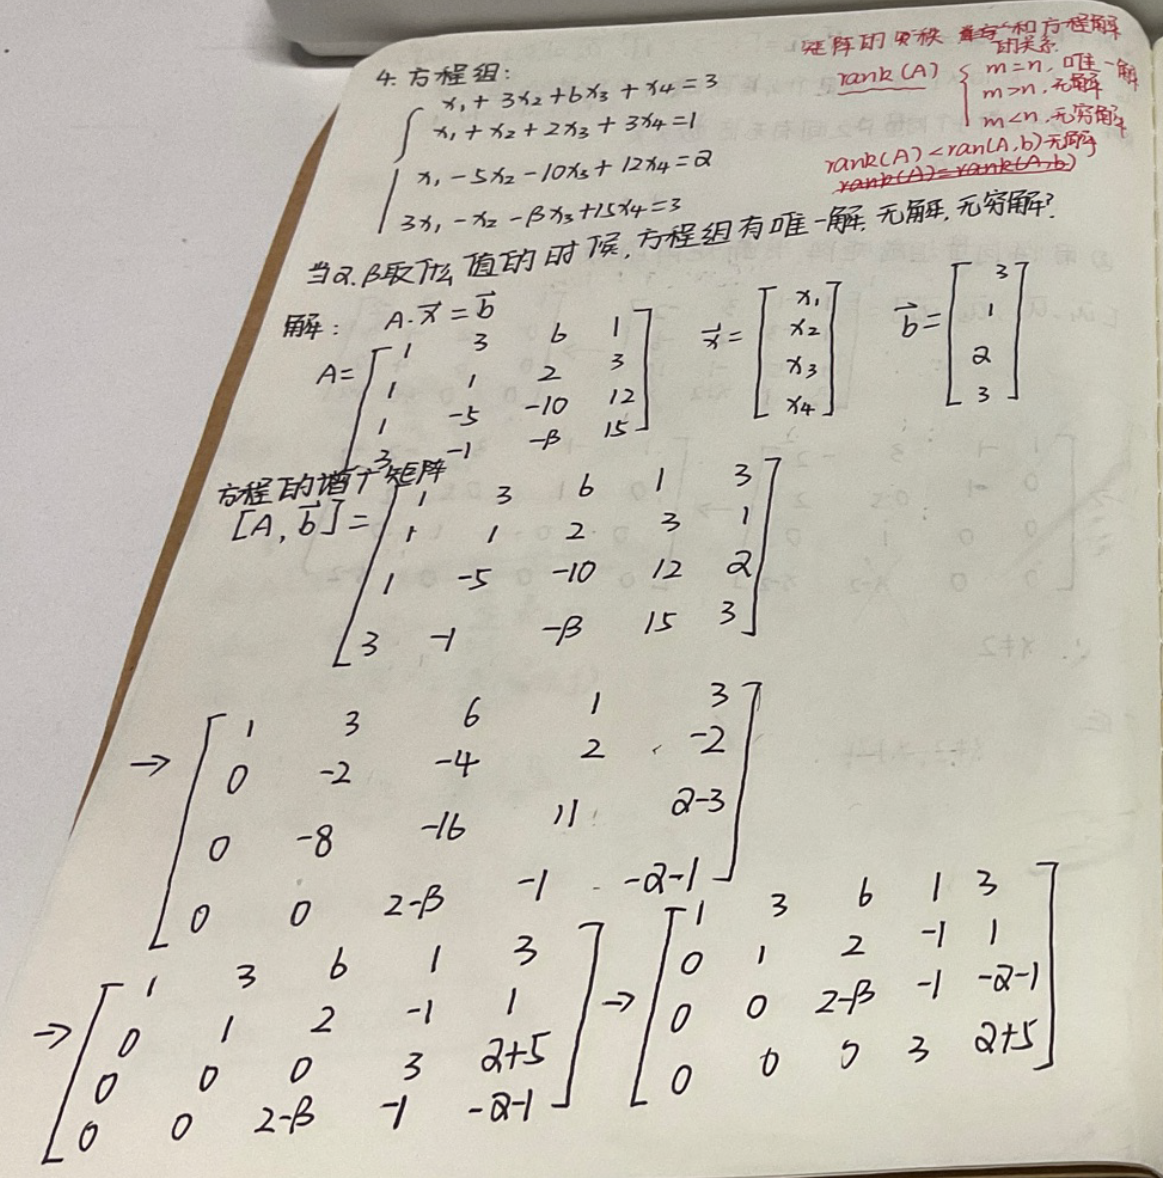 矩阵的矩秩 和方程解
的关系
rank(A) { m=n, 唯一解
m>n, 无解
m<n, 无穷解
rank(A)<ran(A,b)无解
rank(A)=rank(A,b)
4. 方程组:
x₁+3x₂+6x₃+x₄=3
x₁+x₂+2x₃+3x₄=1
x₁-5x₂-10x₃+12x₄=α
3x₁-x₂-βx₃+15x₄=3
当α.β取什么值的时候,方程组有唯一解,无解,无穷解?
解: A·x⃗=b⃗
A=[1 3 6 1
1 1 2 3
1 -5 -10 12
3 -1 -β 15]
x⃗=[x₁
x₂
x₃
x₄]
b⃗=[3
1
α
3]
方程的增广矩阵
[A,b⃗]=[1 3 6 1 3
1 1 2 3 1
1 -5 -10 12 α
3 -1 -β 15 3]
→[1 3 6 1 3
0 -2 -4 2 -2
0 -8 -16 11 α-3
0 0 2-β -1 -α-1]
→[1 3 6 1 3
0 1 2 -1 1
0 0 0 3 α+5
0 0 2-β -1 -α-1]
→[1 3 6 1 3
0 1 2 -1 1
0 0 2-β -1 -α-1
0 0 0 3 α+5]